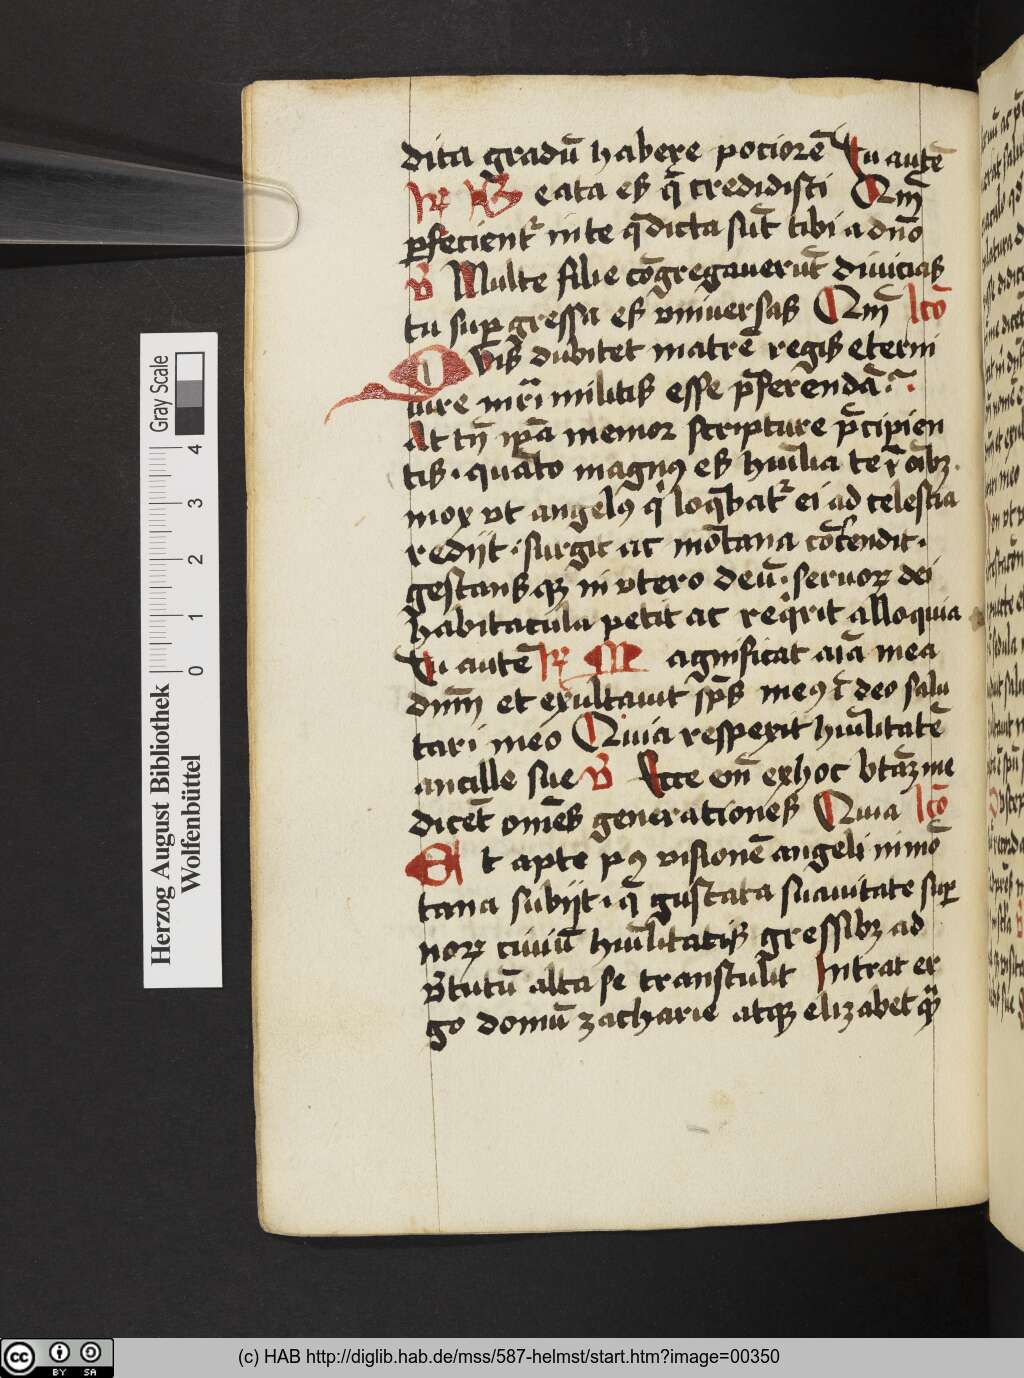 dita gradū habere pociorē Tu autē
R̄ Beata es q̄ credidisti Qm̄
ꝑfecient᷑ in te q̄ dicta sūt tibi a dn̄o
V̄ Multe filie cōgregauerūt diuicias
tu suꝑgressa es vniuersas Qm̄ lc̄o
Quis dubitet matrē regis eterni
iure nr̄i militis esse p̄ferendā
At tn̄ ip̄a memor scripture p̄cipien
tis · quāto magnꝰ es hūilia te ī oībꝫ ·
mox vt angelꝰ qͥ loq̄bat᷑ ei ad celestia
redijt · surgit ac mōtana cōtendit ·
gestansqꝫ in vtero deū · seruoꝝ dei
habitacula petit ac reqͥrit alloquia
Tu autē R̄ Magnificat aīa mea
dnm̄ et exultauit sp̄s meꝰ ī deo salu
tari meo Quia respexit hūilitatē
ancille sue V̄ Ecce em̄ ex hoc btāꝫ me
dicēt om̄es generationes Quia lc̄o
Et apte pꝰ visionē angeli in mō
tana subijt · q̄ gustata suauitate suꝑ
noꝝ ciuiū hūilitatis gressibꝫ ad
v̄tutū alta se transtulit Intrat er
go domū zacharie atqꝫ elizabet
Gray Scale
0 1 2 3 4
Herzog August Bibliothek
Wolfenbüttel
cc BY SA
(c) HAB http://diglib.hab.de/mss/587-helmst/start.htm?image=00350